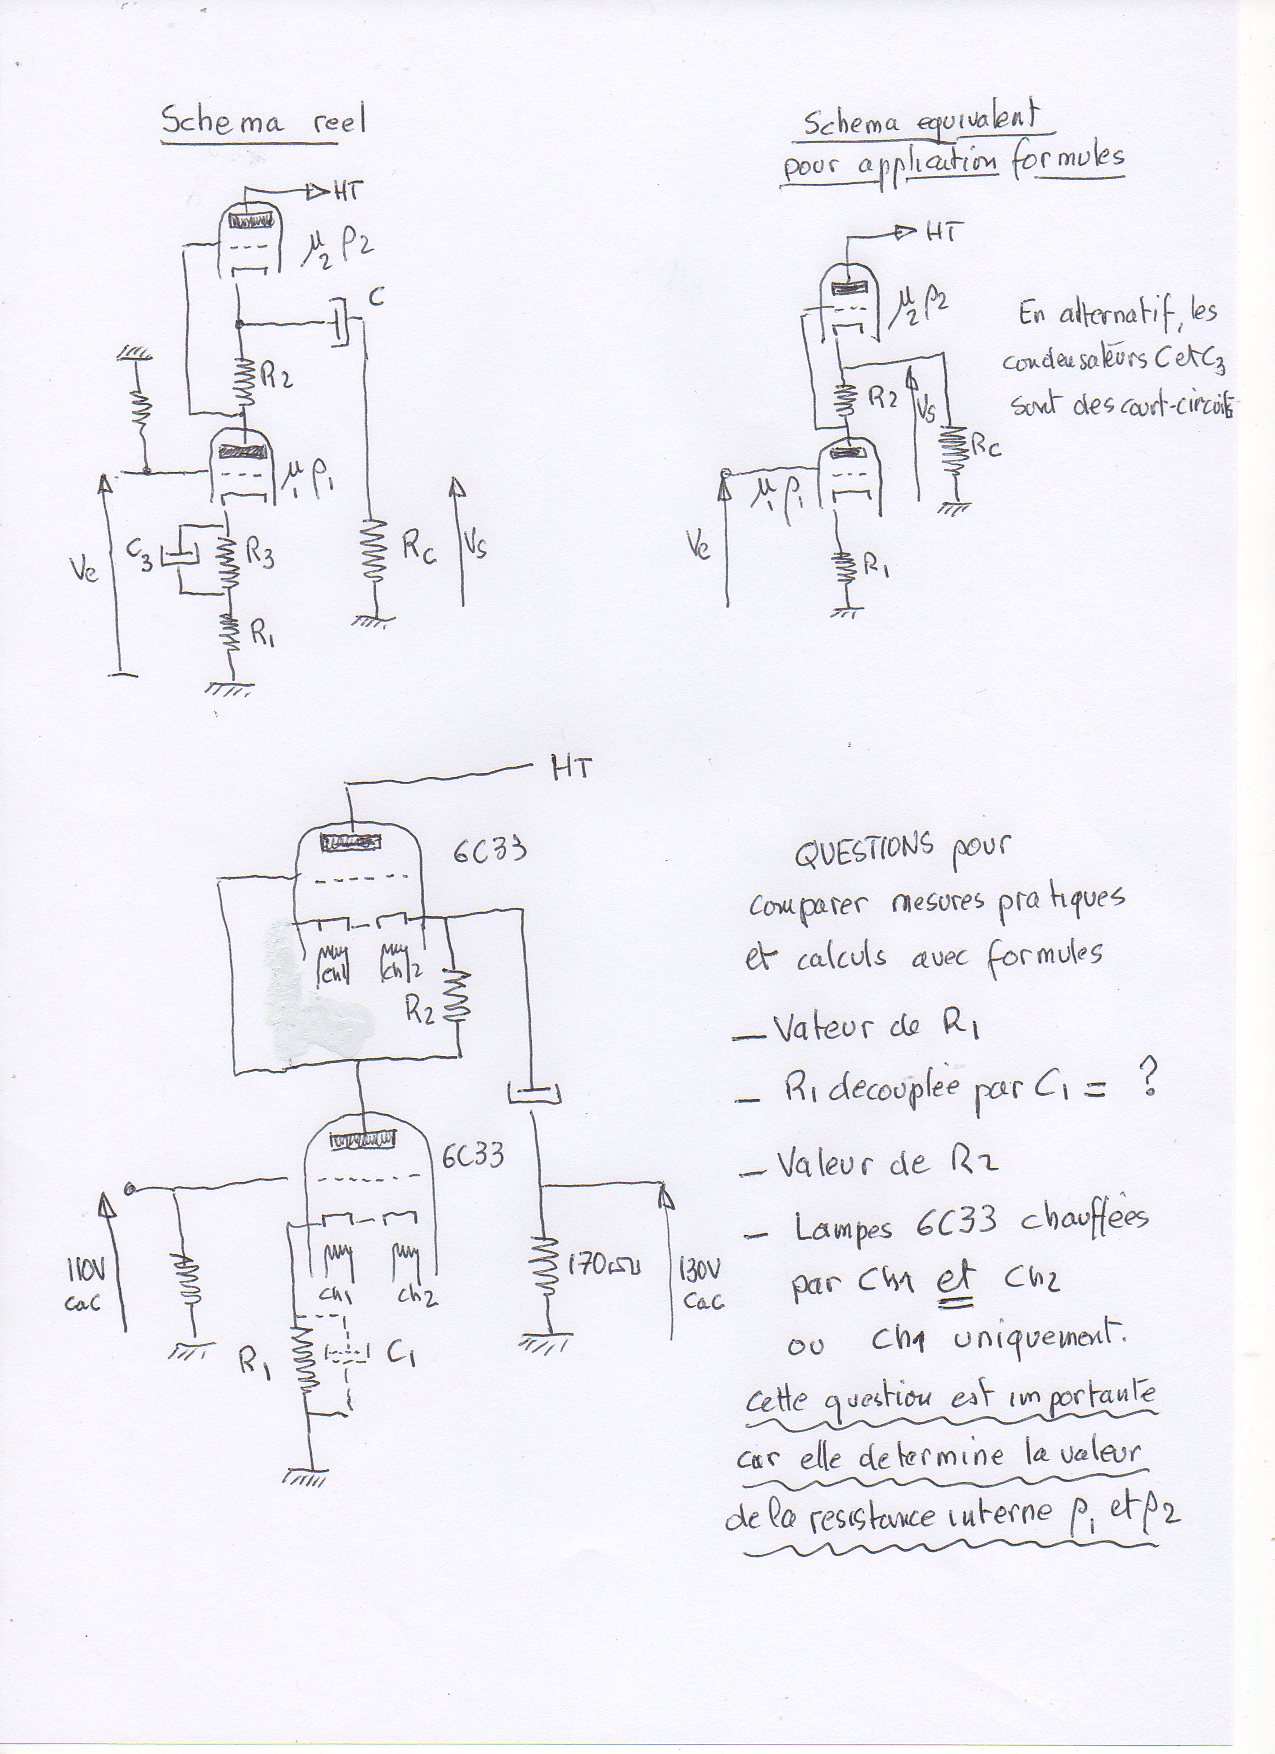 Schema reel
HT
μ2 ρ2
C
R2
μ1 ρ1
C3
R3
Rc
Vs
Ve
R1
Schema equivalent
pour application formules
HT
μ2 ρ2
R2
Vs
Rc
μ1 ρ1
Ve
R1
En alternatif, les
condensateurs C et C3
sont des court-circuits
HT
6C33
ch1
ch2
R2
6C33
110V
cac
ch1
ch2
170Ω
130V
cac
R1
C1
QUESTIONS pour
comparer mesures pratiques
et calculs avec formules
— Valeur de R1
— R1 decouplée par C1 = ?
— Valeur de R2
— Lampes 6C33 chauffées
par Ch1 et Ch2
ou Ch1 uniquement.
Cette question est importante
car elle determine la valeur
de la resistance interne ρ1 et ρ2